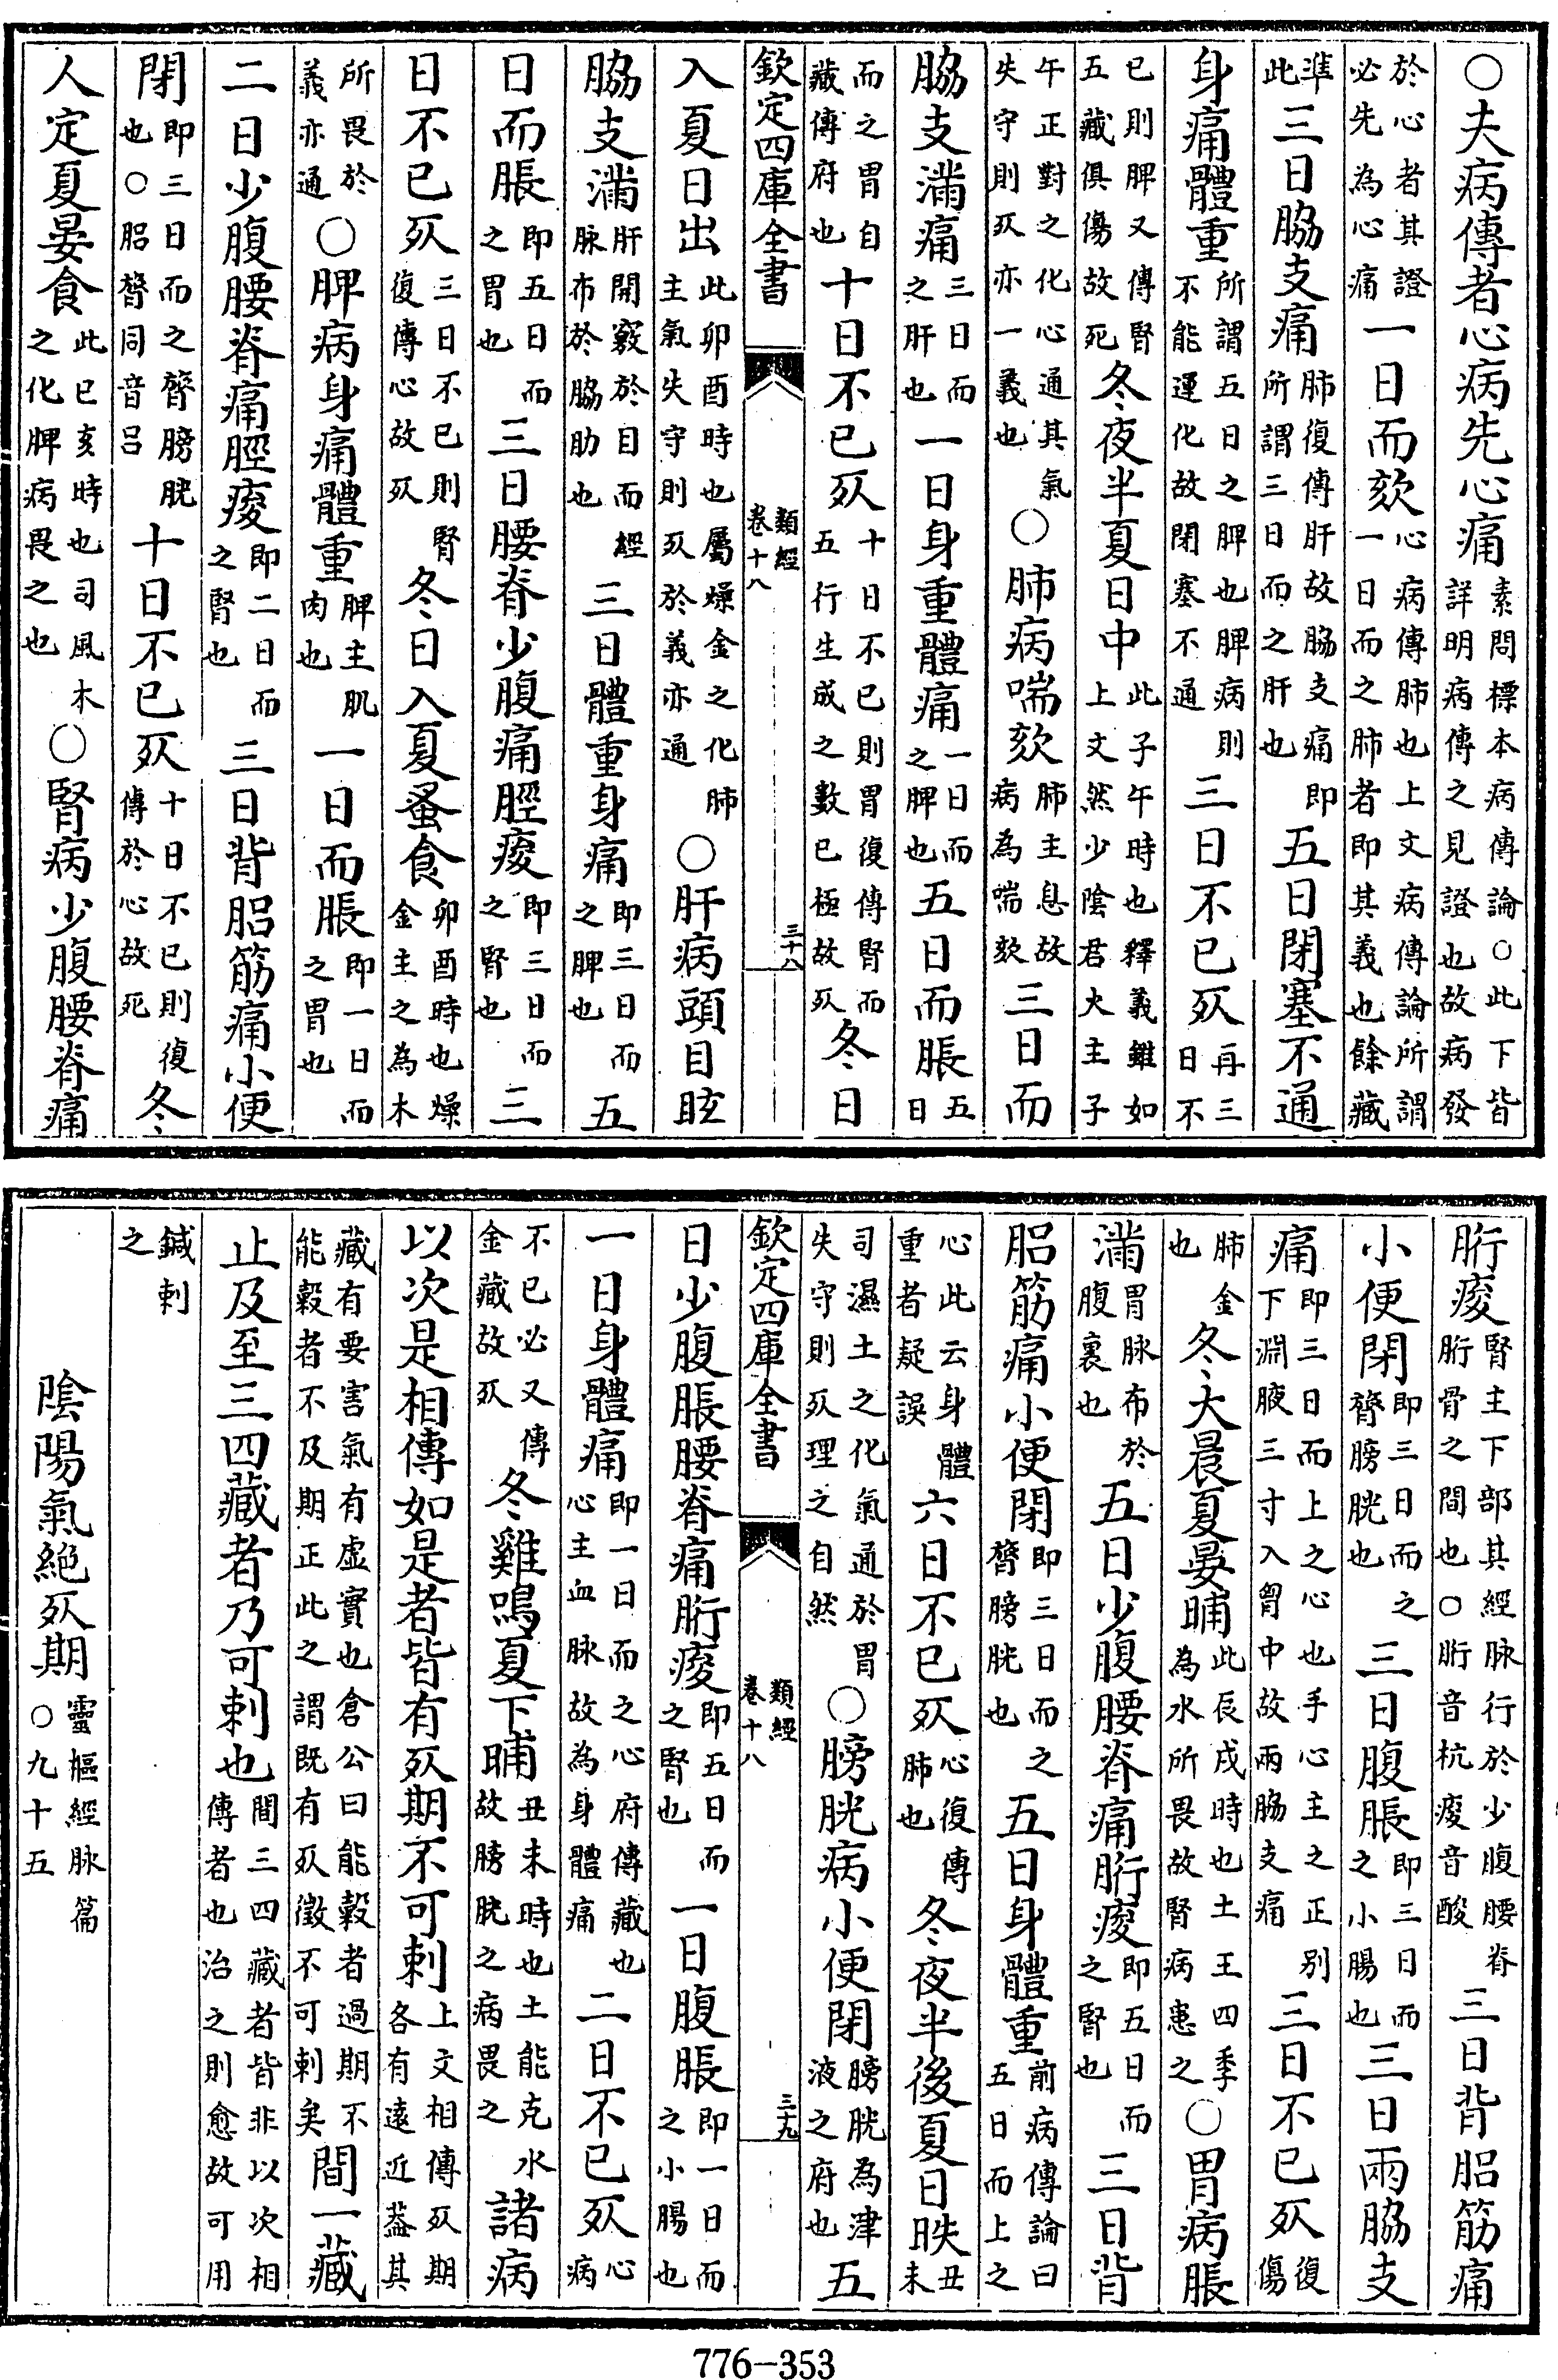 ○夫病傳者心病先心痛素問標本病傳論○此下皆詳明病傳之見證也故病發
於心者其證必先為心痛一日而欬心病傳肺也上文病傳論所謂一日而之肺者即其義也餘藏
準此三日脇支痛肺復傳肝故脇支痛即所謂三日而之肝也五日閉塞不通
身痛體重所謂五日之脾也脾病則不能運化故閉塞不通三日不已死再三日不
已則脾又傳腎五藏俱傷故死冬夜半夏日中此子午時也釋義雖如上文然少陰君火主子
午正對之化心通其氣失守則死亦一義也○肺病喘欬肺主息故病為喘欬三日而
脇支滿痛三日而之肝也一日身重體痛一日而之脾也五日而脹五日
而之胃自藏傳府也十日不已死十日不已則胃復傳腎而五行生成之數已極故死冬日
欽定四庫全書 類經卷十八 三十八
入夏日出此卯酉時也屬燥金之化肺主氣失守則死於義亦通○肝病頭目眩
脇支滿肝開竅於目而經脉布於脇肋也三日體重身痛即三日而之脾也五
日而脹即五日而之胃也三日腰脊少腹痛脛痠即三日而之腎也三
日不已死三日不已則腎復傳心故死冬日入夏蚤食卯酉時也燥金主之為木
所畏於義亦通○脾病身痛體重脾主肌肉也一日而脹即一日而之胃也
二日少腹腰脊痛脛痠即二日而之腎也三日背䏚筋痛小便
閉即三日而之膂膀胱也○䏚膂同音呂十日不已死十日不已則復傳於心故死冬
人定夏晏食此巳亥時也司風木之化脾病畏之也○腎病少腹腰脊痛
䯒痠腎主下部其經脉行於少腹腰脊䯒骨之間也○䯒音杭痠音酸三日背䏚筋痛
小便閉即三日而之膂膀胱也三日腹脹即三日而之小腸也三日兩脇支
痛即三日而上之心也手心主之正別下淵腋三寸入胷中故兩脇支痛三日不已死復傷
肺金也冬大晨夏晏晡此辰戌時也土王四季為水所畏故腎病患之○胃病脹
滿胃脉布於腹裏也五日少腹腰脊痛䯒痠即五日而之腎也三日背
䏚筋痛小便閉即三日而之膂膀胱也五日身體重前病傳論曰五日而上之
心此云身體重者疑誤六日不已死心復傳肺也冬夜半後夏日昳丑未
司濕土之化氣通於胃失守則死理之自然○膀胱病小便閉膀胱為津液之府也五
欽定四庫全書 類經卷十八 三十九
日少腹脹腰脊痛䯒痠即五日而之腎也一日腹脹即一日而之小腸也
一日身體痛即一日而之心府傳藏也心主血脉故為身體痛二日不已死心病
不已必又傳金藏故死冬雞鳴夏下晡丑未時也土能克水故膀胱之病畏之諸病
以次是相傳如是者皆有死期不可刺上文相傳死期各有遠近葢其
藏有要害氣有虛實也倉公曰能穀者過期不能穀者不及期正此之謂既有死徵不可刺矣間一藏
止及至三四藏者乃可刺也間三四藏者皆非以次相傳者也治之則愈故可用
鍼刺之
陰陽氣絕死期靈樞經脉篇○九十五
776-353